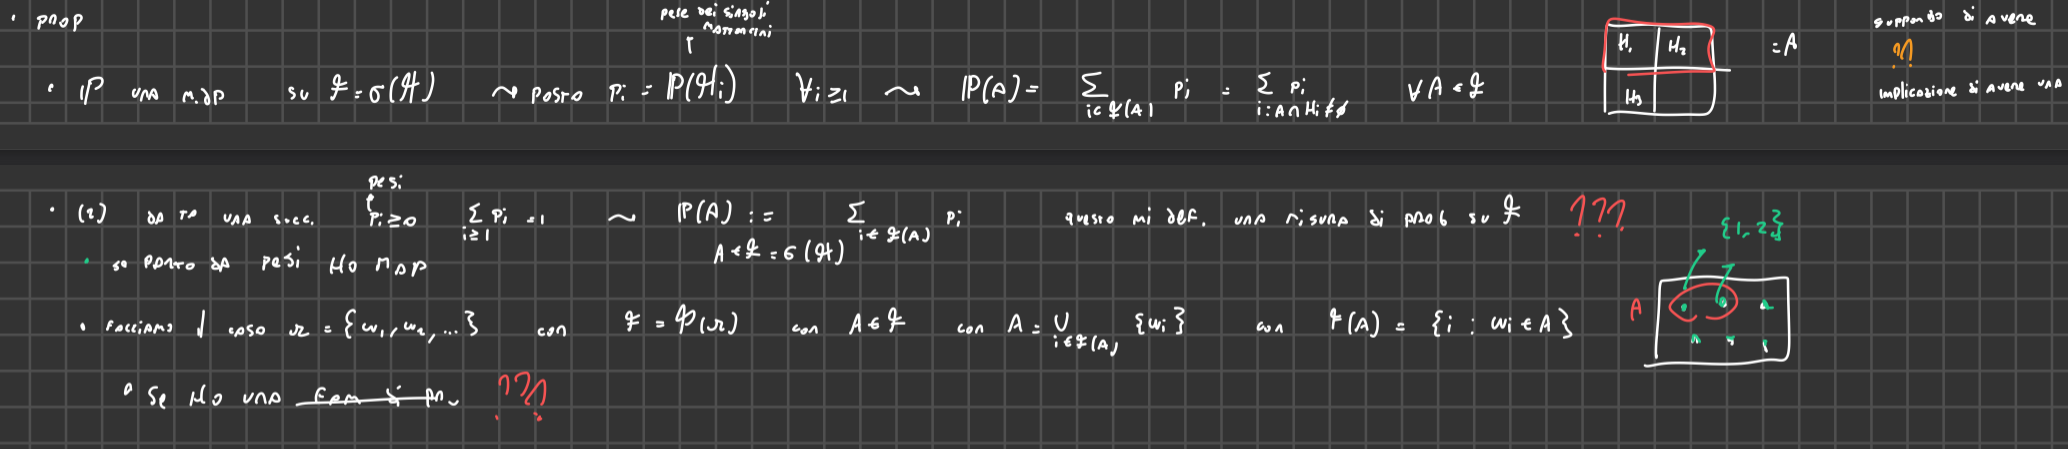 • PROP
pese dei singoli mattoncini
• ℙ UNA M.DP su ℱ = σ(ℋ) ⤳ POSTO pᵢ = ℙ(ℋᵢ) ∀i≥1 ⤳ ℙ(A) = Σ_{i∈ℱ(A)} pᵢ = Σ_{i: A∩Hᵢ≠∅} pᵢ ∀A∈ℱ
H₁ H₂ = A
H₃
supponendo di avere
??
implicazione di avere una
pesi
• (2) DATA UNA succ. pᵢ≥0 Σ_{i≥1} pᵢ = 1 ⤳ ℙ(A) := Σ_{i∈ℱ(A)} pᵢ questo mi def. una misura di prob su ℱ ???
A∈ℱ = σ(ℋ)
• se parto da pesi ho MDP
{1,2}
• facciamo il caso Ω = {ω₁, ω₂, ...} con ℱ = 𝒫(Ω) con A∈ℱ con A = ∪_{i∈ℱ(A)} {ωᵢ} con ℱ(A) = {i : ωᵢ∈A}
A
• Se ho una ???